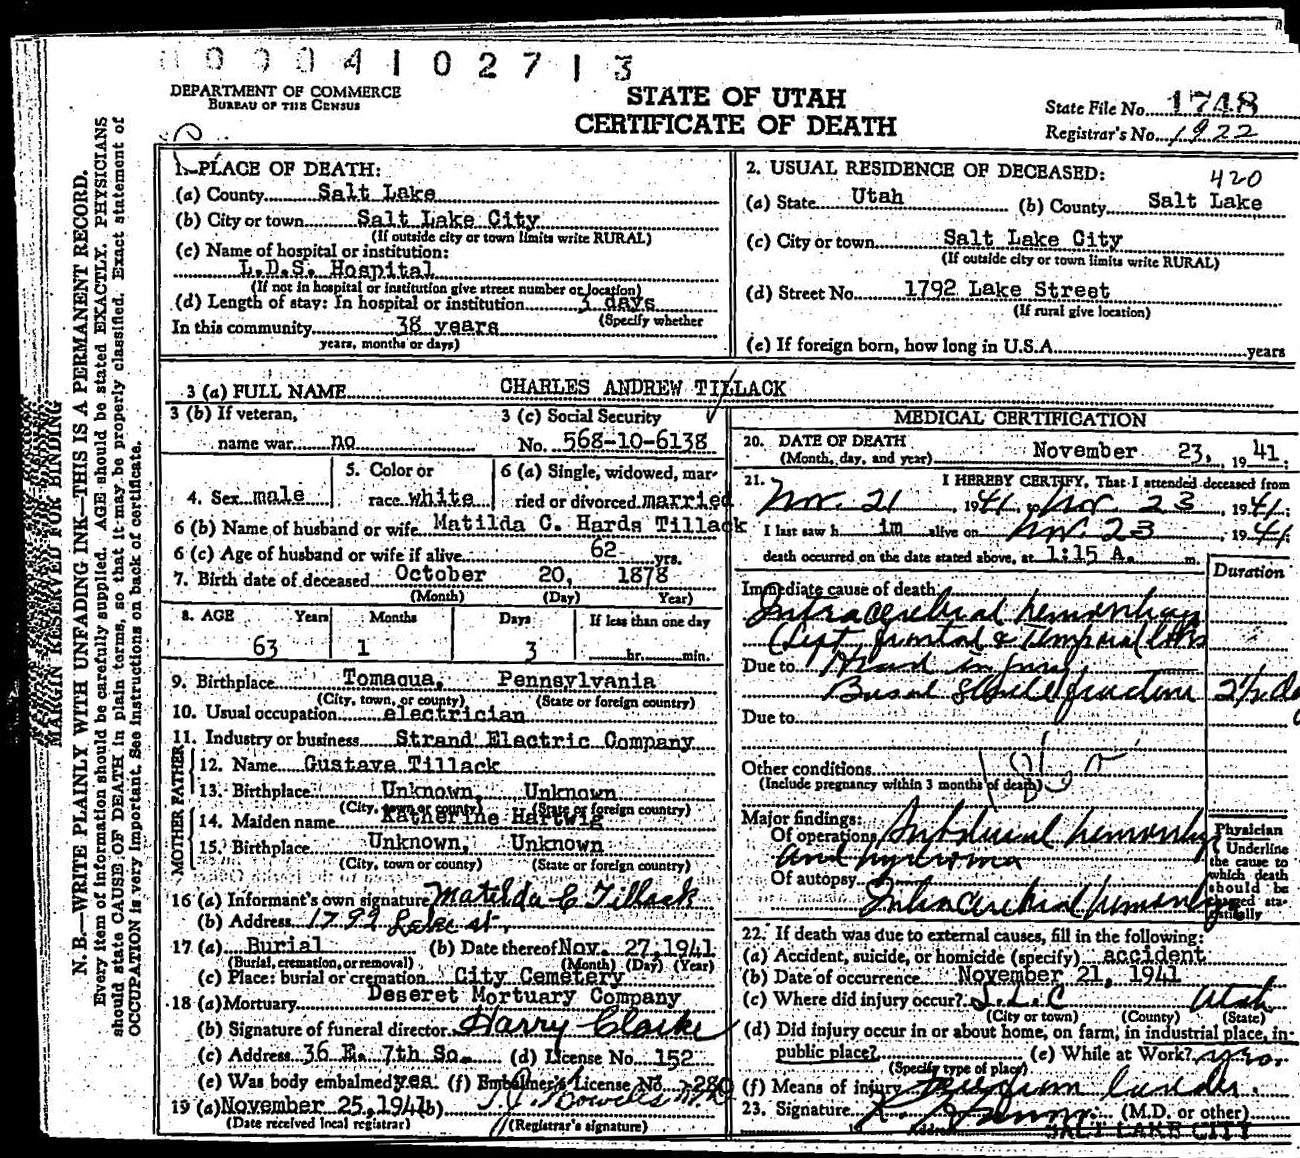 0 0 0 0 4 1 0 2 7 1 3
DEPARTMENT OF COMMERCE
BUREAU OF THE CENSUS
STATE OF UTAH
CERTIFICATE OF DEATH
State File No. 1748
Registrar's No. 1922
N. B.—WRITE PLAINLY WITH UNFADING INK—THIS IS A PERMANENT RECORD.
Every item of information should be carefully supplied. AGE should be stated EXACTLY. PHYSICIANS
should state CAUSE OF DEATH in plain terms, so that it may be properly classified. Exact statement of
OCCUPATION is very important. See instructions on back of certificate.
MARGIN RESERVED FOR BINDING
1. PLACE OF DEATH:
(a) County Salt Lake
(b) City or town Salt Lake City
(If outside city or town limits write RURAL)
(c) Name of hospital or institution:
L.D.S. Hospital
(If not in hospital or institution give street number or location)
(d) Length of stay: In hospital or institution 3 days
(Specify whether
In this community 38 years
years, months or days)
2. USUAL RESIDENCE OF DECEASED:
420
(a) State Utah (b) County Salt Lake
(c) City or town Salt Lake City
(If outside city or town limits write RURAL)
(d) Street No. 1792 Lake Street
(If rural give location)
(e) If foreign born, how long in U.S.A. years
3 (a) FULL NAME CHARLES ANDREW TILLACK
3 (b) If veteran,
name war no
3 (c) Social Security
No. 568-10-6138
4. Sex male
5. Color or
race white
6 (a) Single, widowed, mar-
ried or divorced married
6 (b) Name of husband or wife Matilda C. Hards Tillack
6 (c) Age of husband or wife if alive 62 yrs.
7. Birth date of deceased October 20, 1878
(Month) (Day) Year)
8. AGE Years Months Days If less than one day
63 1 3 hr. min.
9. Birthplace Tomaqua, Pennsylvania
(City, town, or county) (State or foreign country)
10. Usual occupation electrician
11. Industry or business Strand Electric Company
FATHER
12. Name Gustave Tillack
13. Birthplace Unknown, Unknown
(City, town or county) (State or foreign country)
MOTHER
14. Maiden name Katherine Hartwig
15. Birthplace Unknown, Unknown
(City, town or county) (State or foreign country)
16 (a) Informant's own signature Matilda C Tillack
(b) Address 1799 Lake st.
17 (a) Burial (b) Date thereof Nov. 27, 1941
(Burial, cremation, or removal) (Month) (Day) (Year)
(c) Place: burial or cremation City Cemetery
18 (a) Mortuary Deseret Mortuary Company
(b) Signature of funeral director Harry Clarke
(c) Address 36 E. 7th So. (d) License No. 152
(e) Was body embalmed yes (f) Embalmer's License No. 280
19 (a) November 25, 1941 (b)
(Date received local registrar) (Registrar's signature)
MEDICAL CERTIFICATION
20. DATE OF DEATH
(Month, day, and year) November 23, 1941;
21. I HEREBY CERTIFY, That I attended deceased from
Nov. 21, 1941, to Nov. 23, 1941;
I last saw h im alive on Nov. 23, 1941;
death occurred on the date stated above, at 1:15 A. m.
Duration
Immediate cause of death
Intracerebral hemorrhage
(Left frontal & temporal lobes
Due to Head injury
Basal skull fracture 2½ da
Due to
Other conditions
(Include pregnancy within 3 months of death)
Major findings:
Of operations Subdural hemorrhage
and hygroma
Of autopsy
Intracerebral hemorrhage
Physician
Underline
the cause to
which death
should be
charged sta-
tistically
22. If death was due to external causes, fill in the following:
(a) Accident, suicide, or homicide (specify) accident
(b) Date of occurrence November 21, 1941
(c) Where did injury occur? S.L.C Utah
(City or town) (County) (State)
(d) Did injury occur in or about home, on farm, in industrial place, in
public place? (e) While at Work? yes.
(Specify type of place)
(f) Means of injury
23. Signature (M.D. or other)
19 Address SALT LAKE CITY